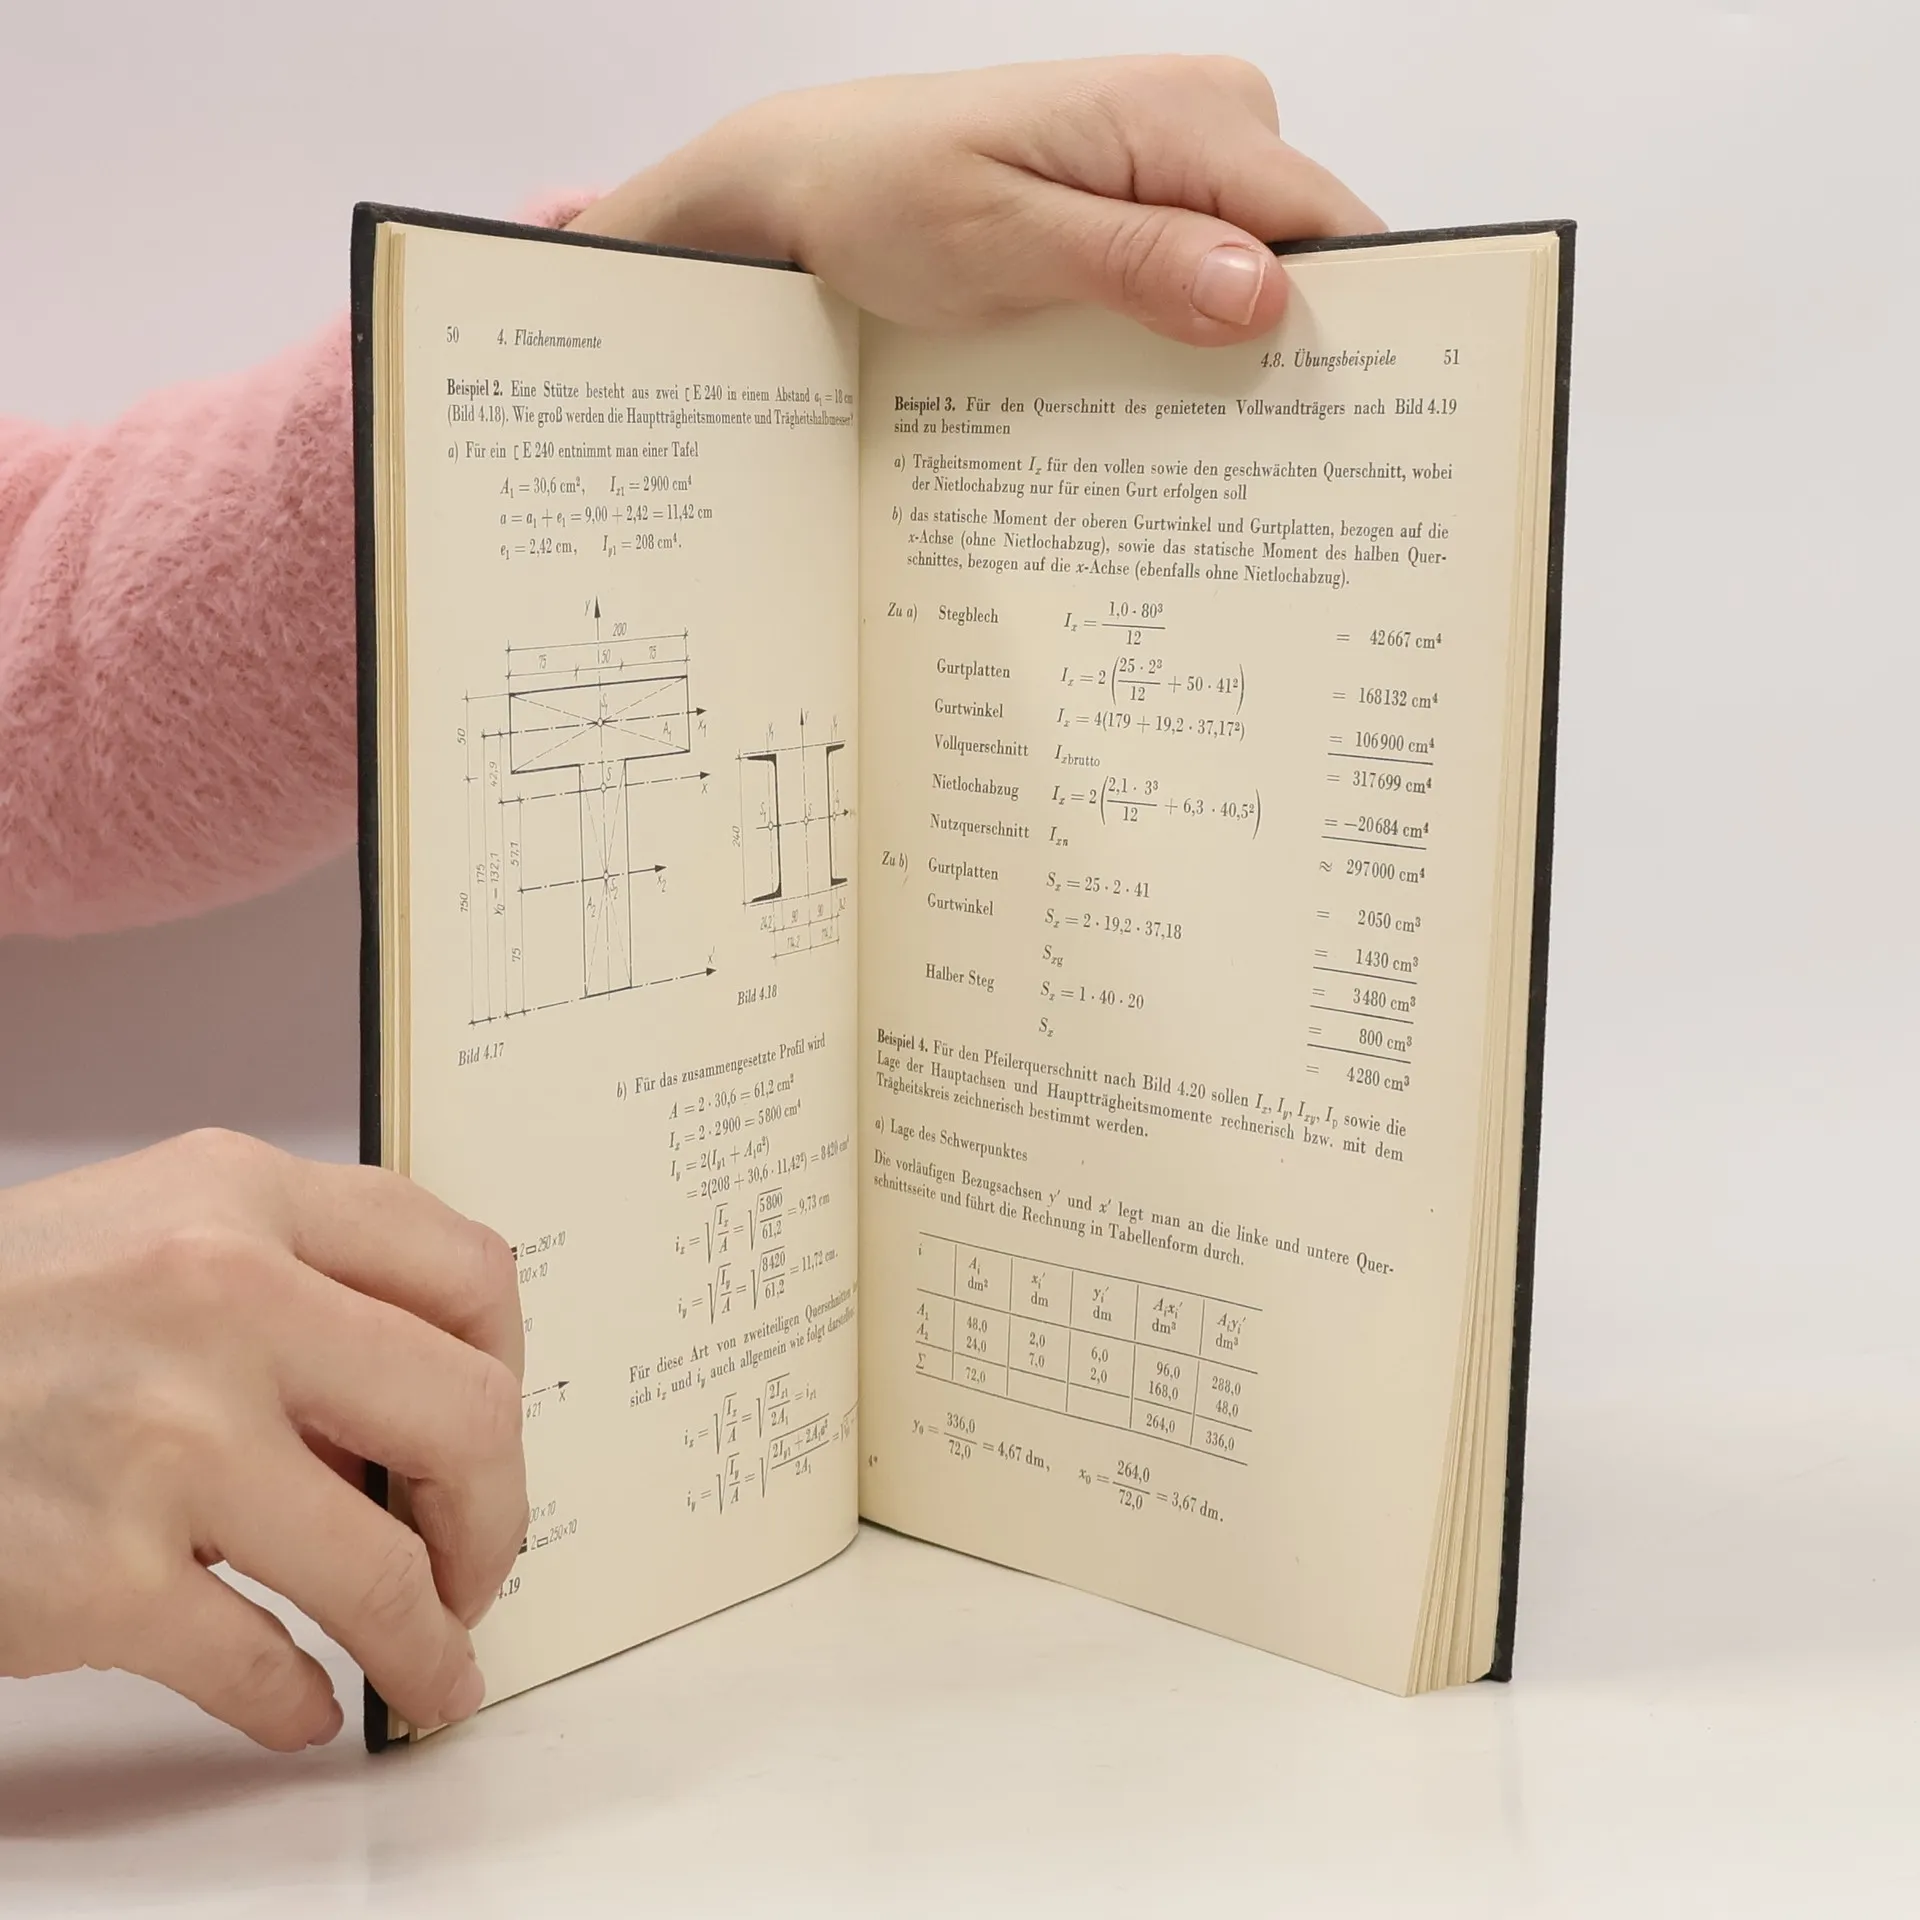 50 4. Flächenmomente
Beispiel 2. Eine Stütze besteht aus zwei [ E 240 in einem Abstand a₁ = 18 cm
(Bild 4.18). Wie groß werden die Hauptträgheitsmomente und Trägheitshalbmesser?
a) Für ein [ E 240 entnimmt man einer Tafel
A₁ = 30,6 cm², Iₓ₁ = 2900 cm⁴
a = a₁ + e₁ = 9,00 + 2,42 = 11,42 cm
e₁ = 2,42 cm, I_y1 = 208 cm⁴.
y
200
75 50 75
S₁
x₁
A₁
50
S
x
42,9
S₂
x₂
A₂
57,1
y₀ = 132,1
175
750
75
x'
Bild 4.17
y₁ y y₁
S₁ S
240
24,2 90 90
114,2 114,2
Bild 4.18
b) Für das zusammengesetzte Profil wird
A = 2 · 30,6 = 61,2 cm²
Iₓ = 2 · 2900 = 5800 cm⁴
I_y = 2(I_y1 + A₁a²)
= 2(208 + 30,6 · 11,42²) = 8420 cm⁴
iₓ = √(Iₓ/A) = √(5800/61,2) = 9,73 cm
i_y = √(I_y/A) = √(8420/61,2) = 11,72 cm.
Für diese Art von zweiteiligen Querschnitten
sich iₓ und i_y auch allgemein wie folgt darstellen
iₓ = √(Iₓ/A) = √(2Iₓ₁/2A₁) = iₓ₁
i_y = √(I_y/A) = √((2I_y1 + 2A₁a²)/2A₁) =
2▭250×10
100×10
10
x
φ21
00×10
2▭250×10
4.19
4.8. Übungsbeispiele 51
Beispiel 3. Für den Querschnitt des genieteten Vollwandträgers nach Bild 4.19
sind zu bestimmen
a) Trägheitsmoment Iₓ für den vollen sowie den geschwächten Querschnitt, wobei
der Nietlochabzug nur für einen Gurt erfolgen soll
b) das statische Moment der oberen Gurtwinkel und Gurtplatten, bezogen auf die
x-Achse (ohne Nietlochabzug), sowie das statische Moment des halben Quer-
schnittes, bezogen auf die x-Achse (ebenfalls ohne Nietlochabzug).
Zu a) Stegblech Iₓ = (1,0 · 80³)/12 = 42667 cm⁴
Gurtplatten Iₓ = 2 (25 · 2³/12 + 50 · 41²) = 168132 cm⁴
Gurtwinkel Iₓ = 4(179 + 19,2 · 37,17²) = 106900 cm⁴
Vollquerschnitt Iₓbrutto = 317699 cm⁴
Nietlochabzug Iₓ = 2 (2,1 · 3³/12 + 6,3 · 40,5²) = −20684 cm⁴
Nutzquerschnitt Iₓₙ ≈ 297000 cm⁴
Zu b) Gurtplatten Sₓ = 25 · 2 · 41 = 2050 cm³
Gurtwinkel Sₓ = 2 · 19,2 · 37,18 = 1430 cm³
S_xg = 3480 cm³
Halber Steg Sₓ = 1 · 40 · 20 = 800 cm³
Sₓ = 4280 cm³
Beispiel 4. Für den Pfeilerquerschnitt nach Bild 4.20 sollen Iₓ, I_y, I_xy, I_p sowie die
Lage der Hauptachsen und Hauptträgheitsmomente rechnerisch bzw. mit dem
Trägheitskreis zeichnerisch bestimmt werden.
a) Lage des Schwerpunktes
Die vorläufigen Bezugsachsen y' und x' legt man an die linke und untere Quer-
schnittsseite und führt die Rechnung in Tabellenform durch.
i Aᵢ xᵢ' yᵢ' Aᵢxᵢ' Aᵢyᵢ'
dm² dm dm dm³ dm³
A₁ 48,0 2,0 6,0 96,0 288,0
A₂ 24,0 7,0 2,0 168,0 48,0
Σ 72,0 264,0 336,0
y₀ = 336,0/72,0 = 4,67 dm, x₀ = 264,0/72,0 = 3,67 dm.
4*